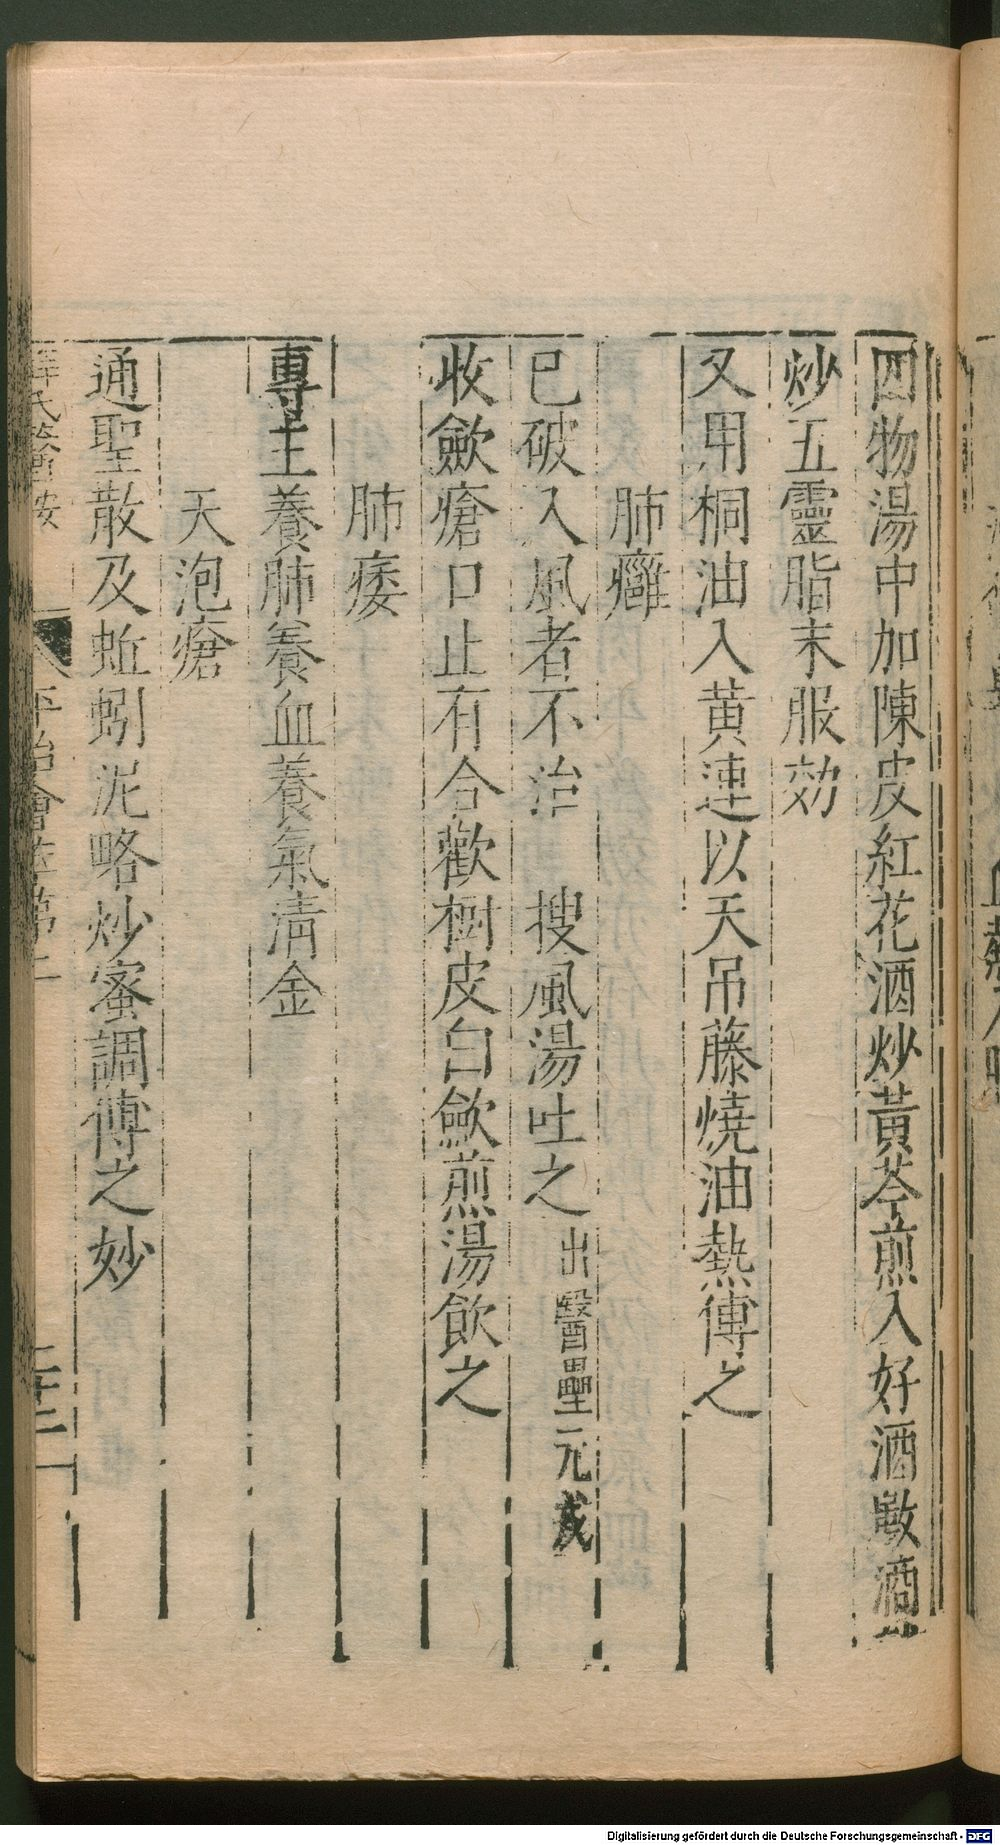 四物湯中加陳皮紅花酒炒黃芩煎入好酒數滴
炒五靈脂末服効
又用桐油入黄連以天吊藤燒油熱傅之
肺癰
已破入風者不治 搜風湯吐之 出醫壘元戎
收歛瘡口止有合歡樹皮白歛煎湯飲之
肺痿
專主養肺養血養氣淸金
天泡瘡
通聖散及蚯蚓泥略炒蜜調傅之妙
薛氏醫按 平治會萃第二
Digitalisierung gefördert durch die Deutsche Forschungsgemeinschaft - DFG